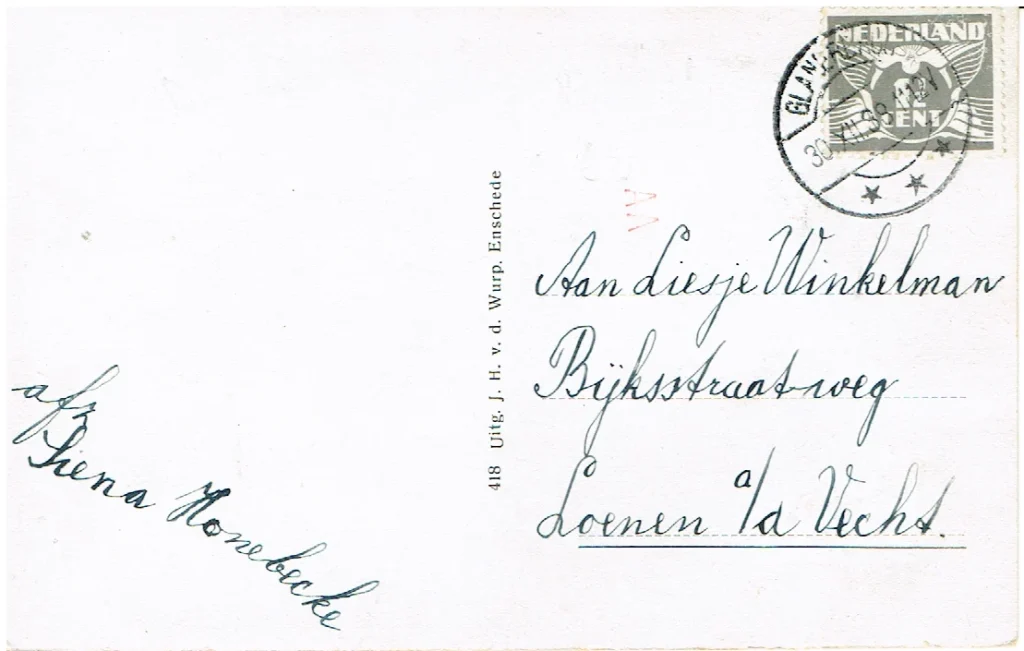 NEDERLAND
2½
CENT
30.XII.38
418 Uitg. J. H. v. d. Wurp. Enschede
AA
Aan Liesje Winkelman
Rijksstraat-weg
Loenen a/d Vecht.
afz
Honebecke